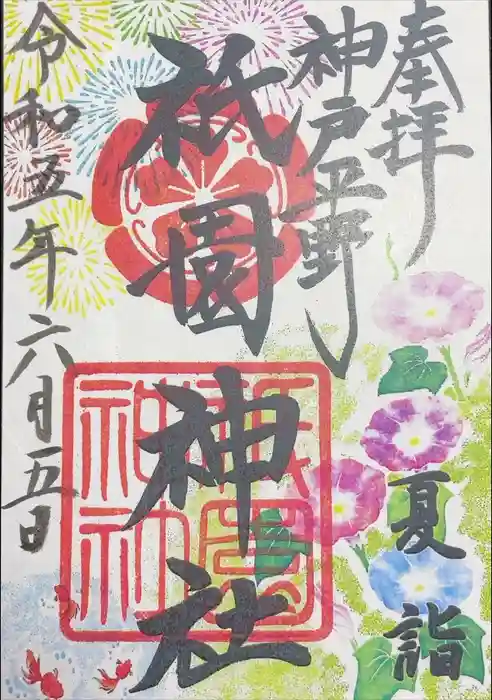 奉拝
神戸平野
祇園神社
夏詣
令和五年六月五日
祇園神社